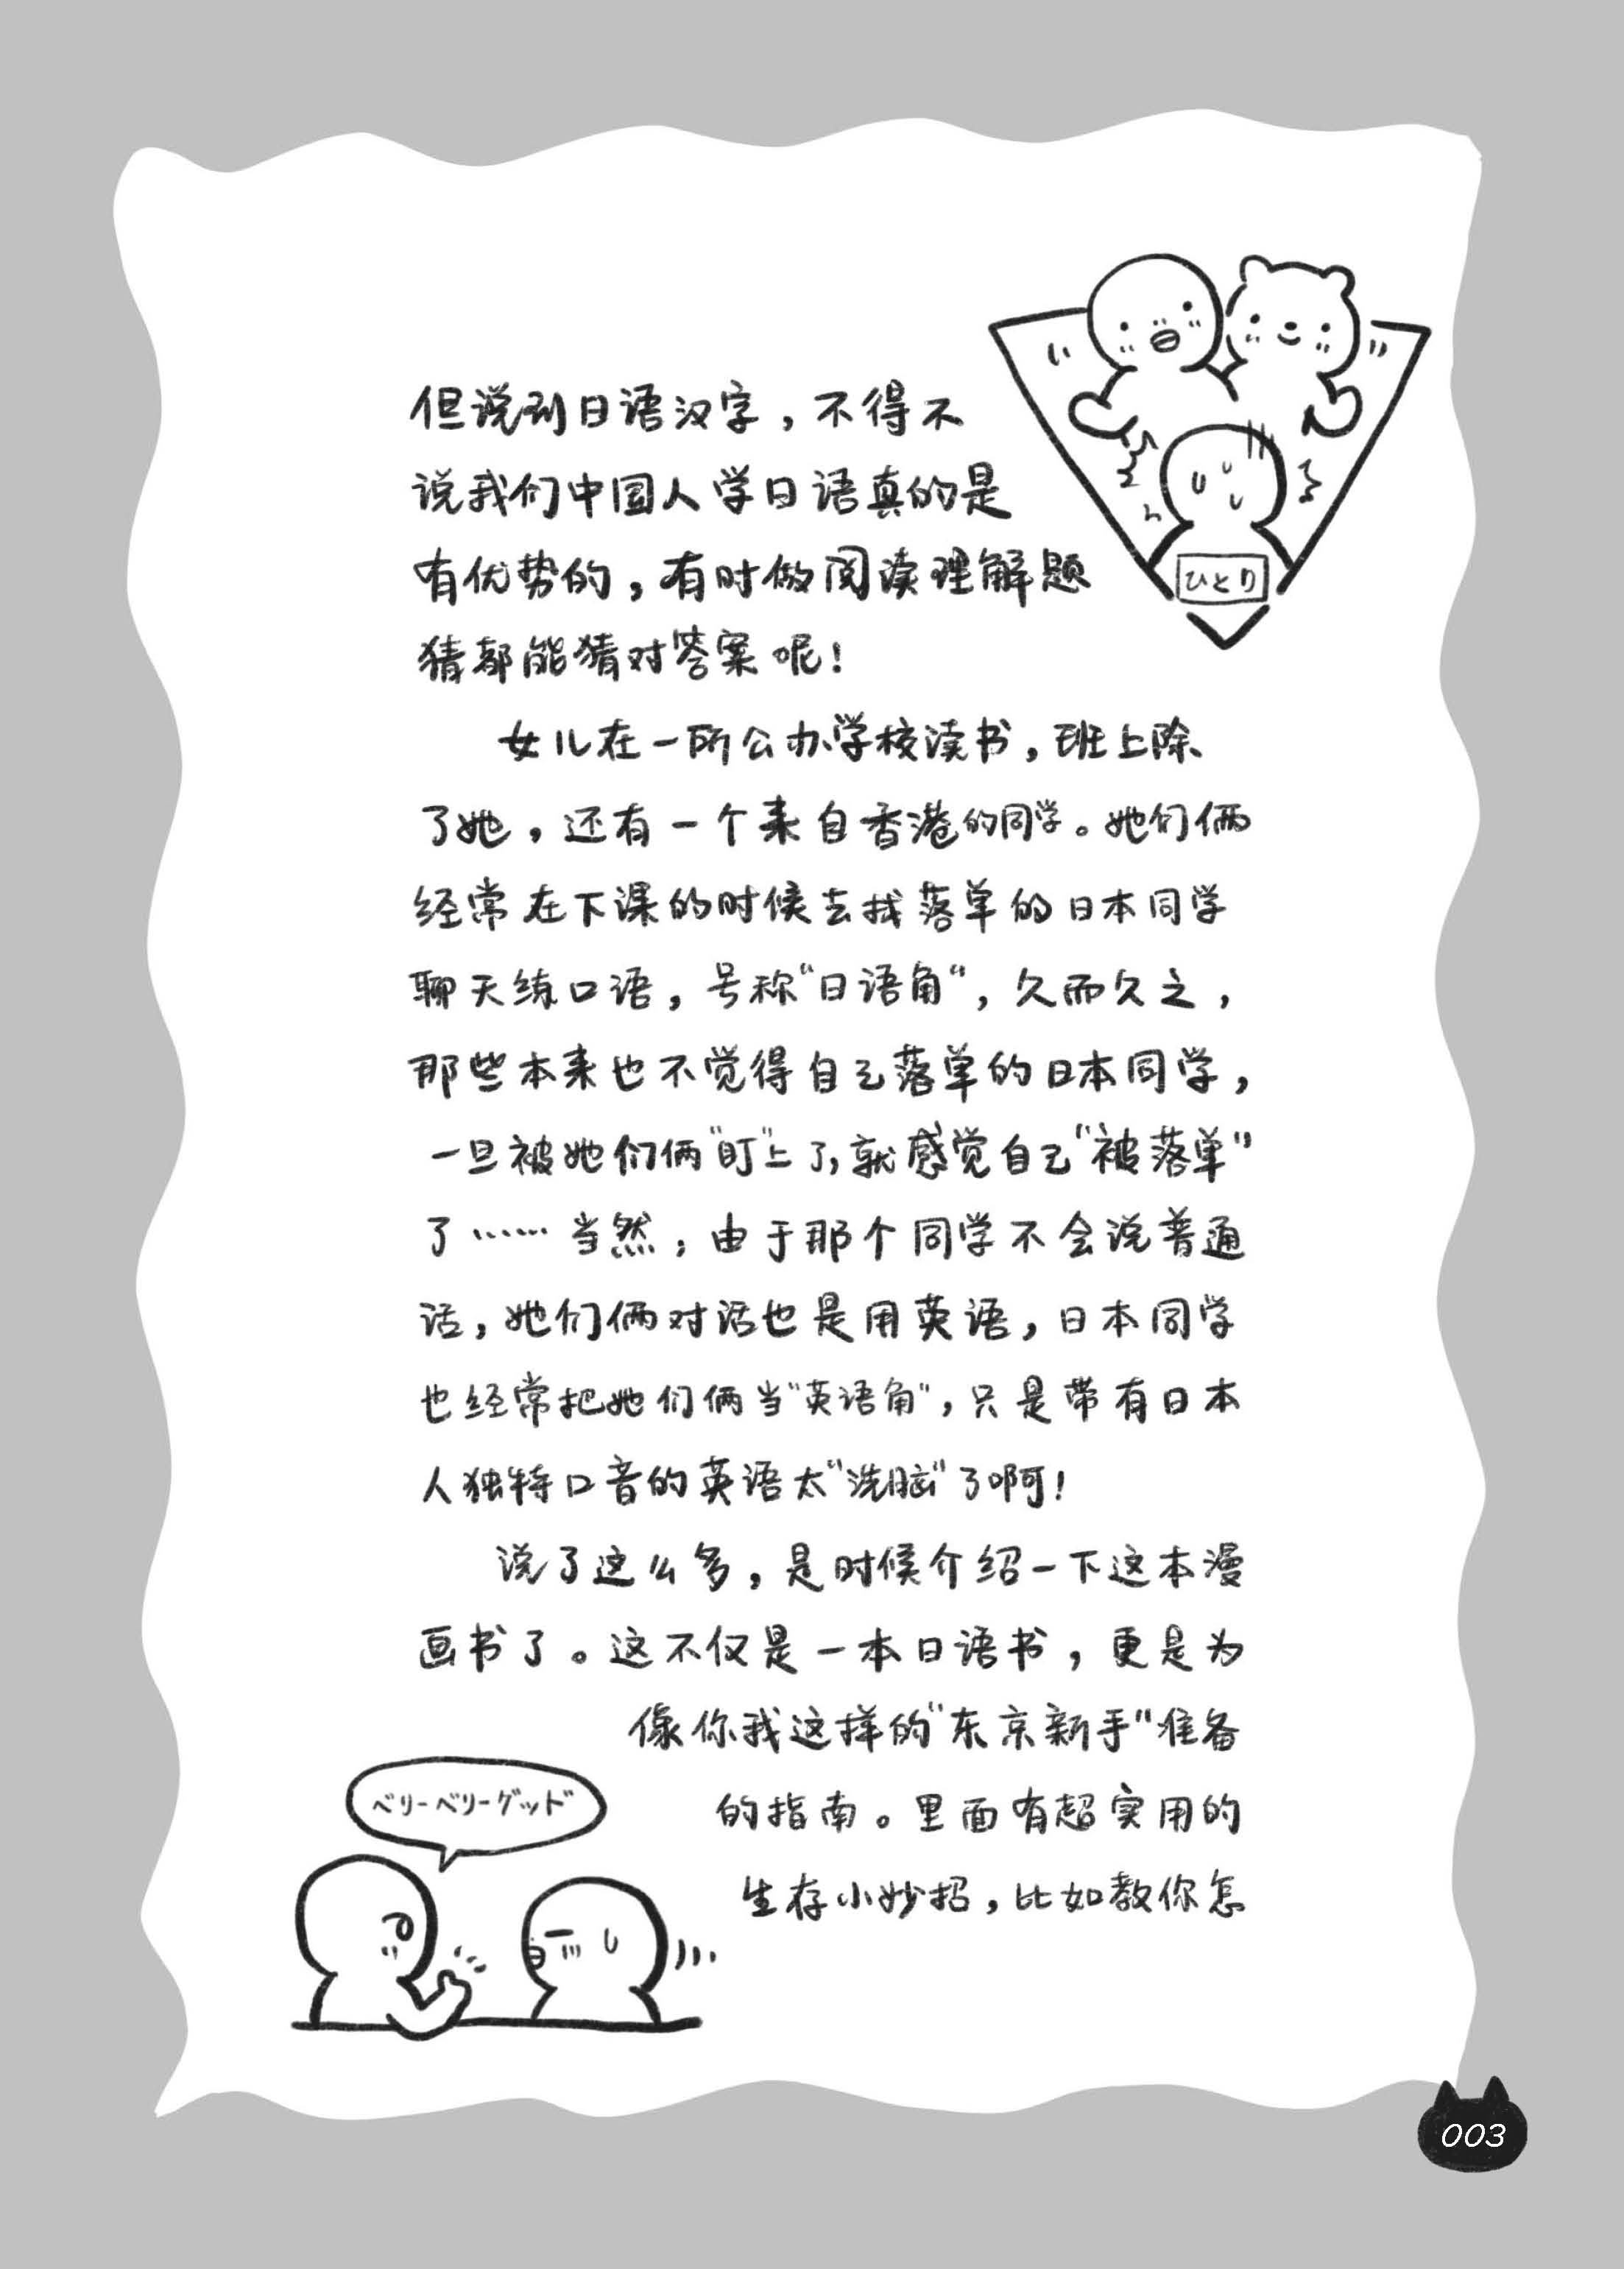 但说到日语汉字，不得不
说我们中国人学日语真的是
有优势的，有时做阅读理解题
猜都能猜对答案呢！
ひとり
女儿在一所公办学校读书，班上除
了她，还有一个来自香港的同学。她们俩
经常在下课的时候去找落单的日本同学
聊天练口语，号称“日语角“，久而久之，
那些本来也不觉得自己落单的日本同学，
一旦被她们俩“盯”上了，就感觉自己“被落单”
了……当然，由于那个同学不会说普通
话，她们俩对话也是用英语，日本同学
也经常把她们俩当“英语角”，只是带有日本
人独特口音的英语太“洗脑”了啊！
说了这么多，是时候介绍一下这本漫
画书了。这不仅是一本日语书，更是为
像你我这样的“东京新手”准备
的指南。里面有超实用的
生存小妙招，比如教你怎
ベリーベリーグッド
003